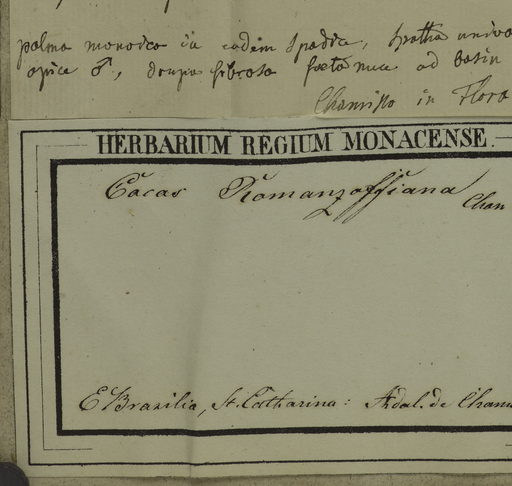 palma monoica in eodem spadice, spatha univa
apice ♂, drupa fibrosa foeta nuce ad basin
Chamisso in Flora
HERBARIUM REGIUM MONACENSE.
Cocos Romanzoffiana Cham
E Brasilia, St. Catharina: Adal. de Cham